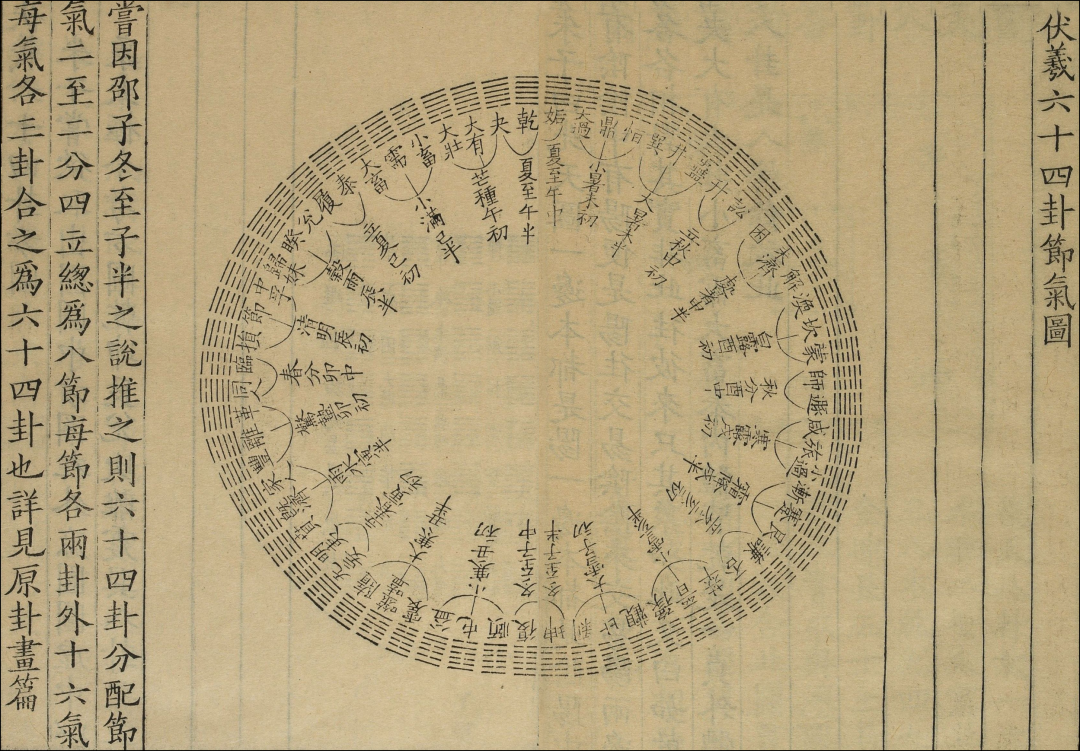 伏羲六十四卦節氣圖
姤
大過
鼎
恒
巽
井
蠱
升
訟
困
未濟
解
渙
坎
蒙
師
遯
咸
旅
小過
漸
蹇
艮
謙
否
萃
晉
豫
觀
比
剝
坤
復
頤
屯
益
震
噬嗑
隨
无妄
明夷
賁
既濟
家人
豐
離
革
同人
臨
損
節
中孚
歸妹
睽
兌
履
泰
大畜
需
小畜
大壯
大有
夬
乾
夏至午中
小暑未初
大暑未半
立秋申初
處暑申半
白露酉初
秋分酉中
寒露戌初
霜降戌半
立冬亥初
小雪亥半
大雪子初
冬至子半
冬至子中
小寒丑初
大寒丑半
立春寅初
雨水寅半
驚蟄卯初
春分卯中
清明辰初
穀雨辰半
立夏巳初
小滿巳半
芒種午初
夏至午半
嘗因邵子冬至子半之說推之則六十四卦分配節
氣二至二分四立緫爲八節每節各兩卦外十六氣
每氣各三卦合之爲六十四卦也詳見原卦畫篇